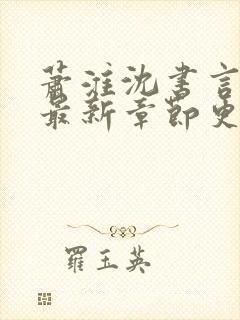 萧淮沈书言
最新章节更
羅玉英